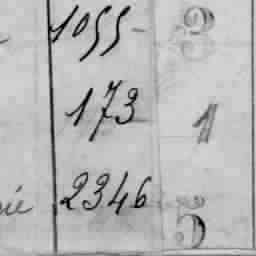 1055- 3
173 1
2346 5